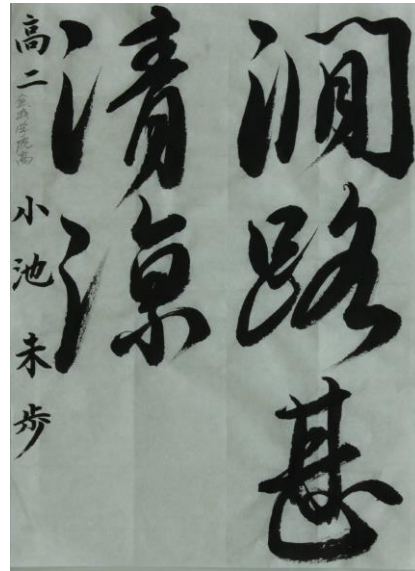 澗路甚
清涼
高二 小池未歩